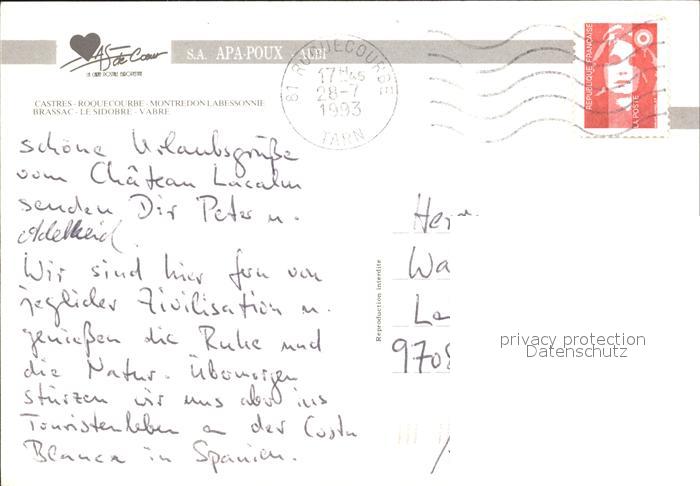 As de Cœur
LA CARTE POSTALE EUROPEENNE
S.A. APA-POUX - ALBI
CASTRES - ROQUECOURBE - MONTREDON LABESSONNIE
BRASSAC - LE SIDOBRE - VABRE
81 ROQUECOURBE
17H45
28-7
1993
TARN
REPUBLIQUE FRANÇAISE
LA POSTE
schöne Urlaubsgrüße
vom Château Lacalm
senden Dir Peter u.
Adelheid.
Wir sind hier fern von
jeglicher Zivilisation u.
genießen die Ruhe und
die Natur. Übermorgen
stürzen wir uns aber ins
Touristenleben an der Costa
Blanca in Spanien.
Reproduction interdite
Herrn
Wa
La
9708
privacy protection
Datenschutz